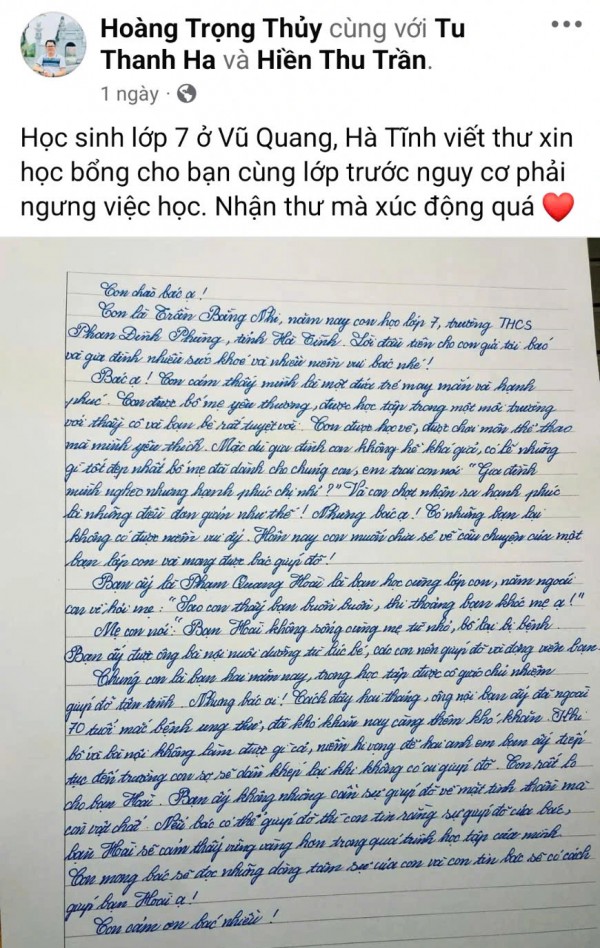 Hoàng Trọng Thủy cùng với Tu
Thanh Ha và Hiền Thu Trần.
1 ngày
Học sinh lớp 7 ở Vũ Quang, Hà Tĩnh viết thư xin
học bổng cho bạn cùng lớp trước nguy cơ phải
ngưng việc học. Nhận thư mà xúc động quá
Con chào bác ạ!
Con là Trần Băng Nhi, năm nay con học lớp 7, trường THCS
Phan Đình Phùng, tỉnh Hà Tĩnh. Lời đầu tiên cho con gửi tới bác
và gia đình nhiều sức khoẻ và nhiều niềm vui bác nhé!
Bác ạ! Con cảm thấy mình là một đứa trẻ may mắn và hạnh
phúc. Con được bố mẹ yêu thương, được học tập trong một môi trường
với thầy cô và bạn bè rất tuyệt vời. Con được học vẽ, được chơi môn thể thao
mà mình yêu thích. Mặc dù gia đình con không hề khá giả, có lẽ những
gì tốt đẹp nhất bố mẹ đã dành cho chúng con, em trai con nói "Gia đình
mình nghèo nhưng hạnh phúc chị nhỉ?" Và con chợt nhận ra hạnh phúc
là những điều đơn giản như thế! Nhưng bác ạ! Có những bạn lại
không có được niềm vui ấy. Hôm nay con muốn chia sẻ về câu chuyện của một
bạn lớp con và mong được bác giúp đỡ!
Bạn ấy là Phạm Quang Hoài là bạn học cùng lớp con, năm ngoái
con về hỏi mẹ: "Sao con thấy bạn buồn buồn, thi thoảng bạn khóc mẹ ạ!"
Mẹ con nói: "Bạn Hoài không sống cùng mẹ từ nhỏ, bố lại bị bệnh.
Bạn ấy được ông bà nội nuôi dưỡng từ lúc bé, các con nên giúp đỡ và động viên bạn.
Chúng con là bạn hai năm nay, trong học tập được cô giáo chủ nhiệm
giúp đỡ tận tình. Nhưng bác ơi! Cách đây hai tháng, ông nội bạn ấy đã ngoài
70 tuổi mắc bệnh ung thư, đã khó khăn nay càng thêm khó khăn. Khi
bố và bà nội không làm được gì cả, niềm hi vọng để hai anh em bạn ấy tiếp
tục đến trường con sợ sẽ dần khép lại khi không có ai giúp đỡ. Con rất lo
cho bạn Hoài. Bạn ấy không những cần sự giúp đỡ về mặt tinh thần mà
còn vật chất. Nếu bác có thể giúp đỡ thì con tin rằng sự giúp đỡ của bác,
bạn Hoài sẽ cảm thấy vững vàng hơn trong quá trình học tập của mình.
Con mong bác sẽ đọc những dòng tâm sự của con và con tin bác sẽ có cách
giúp bạn Hoài ạ!
Con cảm ơn bác nhiều!